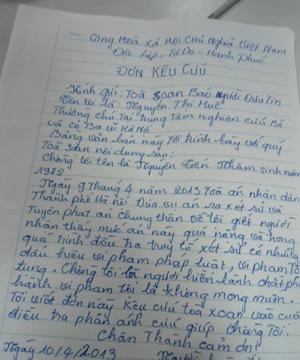 Cộng Hoà Xã Hội Chủ Nghĩa Việt Nam
Độc Lập - Tự Do - Hạnh Phúc
ĐƠN KÊU CỨU
Kính gửi: Toà Soạn Báo Người Đưa Tin
Tên tôi là: Nguyễn Thị Huế
Thường chú Tại Trung Tâm nghiên cứu Bò
và cỏ Ba Vì Hà Nội
Bằng văn bản này Tôi trình bày với quý
Toà soạn nội dung sau:
Chồng tôi tên là Nguyễn Tiến sinh năm
1972
Ngày 9 Tháng 4 năm 2013 Toà án nhân dân
Thành phố Hà nội Đưa vụ án ra xét sử và
Tuyên phạt án chung thân về tội giết người
nhận thấy mức án này quá nặng và trong
quá trình điều tra truy tố xét sử có những
dấu hiệu vi phạm pháp luật, vi phạm Tố
Tụng. Chồng tôi là người hiền lành chất phác
hành vi phạm tội là không mong muốn.
Tôi viết đơn này kêu cứu toà xoạn vào cuộc
điều tra phản ánh cứu giúp chồng Tôi.
Chân Thành cảm ơn!
Ngày 10/4/2013